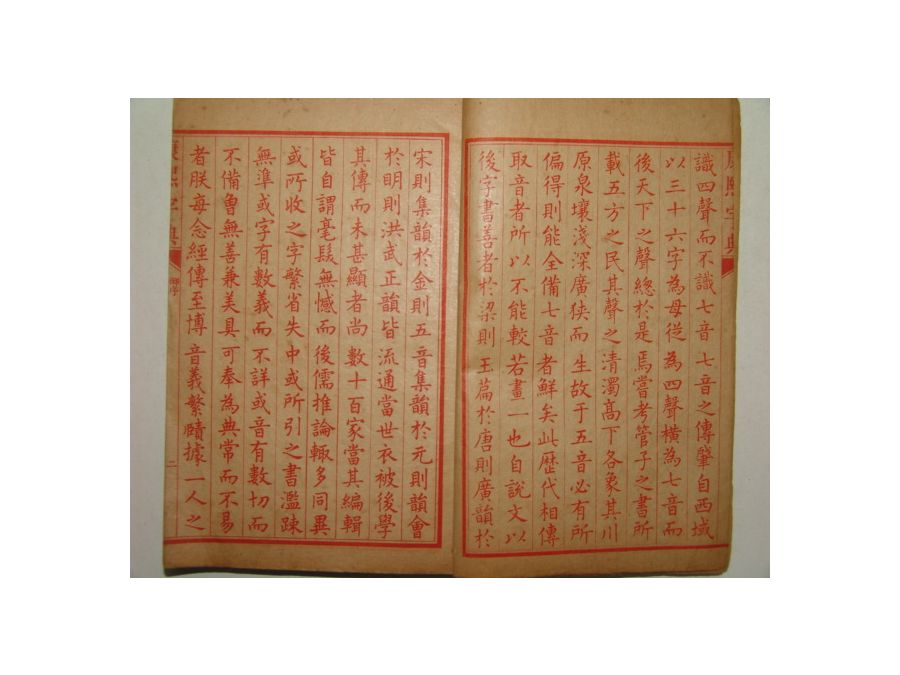 康熙字典
識四聲而不識七音七音之傳肇自西域
以三十六字為母從為四聲橫為七音而
後天下之聲總於是焉嘗考管子之書所
載五方之民其聲之清濁高下各象其川
原泉壤淺深廣狹而生故于五音必有所
偏得則能全備七音者鮮矣此歷代相傳
取音者所以不能較若畫一也自說文以
後字書善者於梁則玉篇於唐則廣韻於
宋則集韻於金則五音集韻於元則韻會
於明則洪武正韻皆流通當世衣被後學
其傳而未甚顯者尚數十百家當其編輯
皆自謂毫髮無憾而後儒推論輒多同異
或所收之字繁省失中或所引之書濫疎
無準或字有數義而不詳或音有數切而
不備曾無善兼美具可奉為典常而不易
者朕每念經傳至博音義繁賾據一人之
康熙字典 御序 二